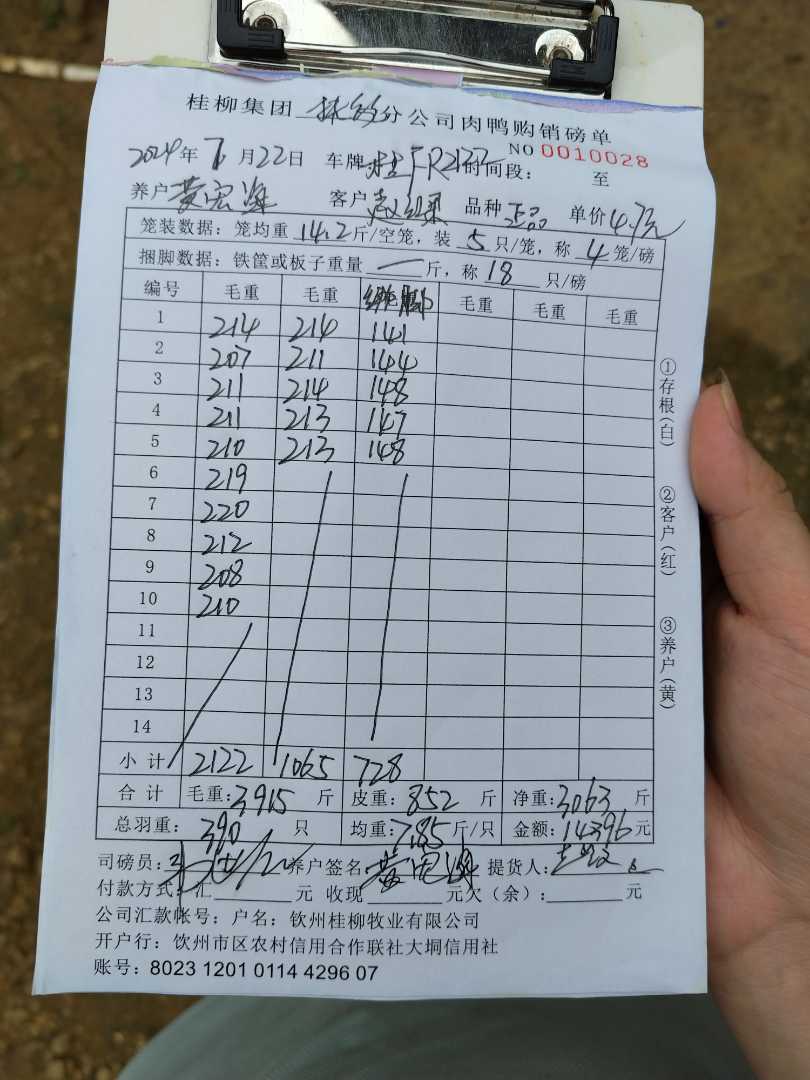 桂柳集团 分公司肉鸭购销磅单
NO 0010028
2024年7月22日 车牌: 时间段: 至
养户 黄宏海 客户 赵 品种 正品 单价 4.7元
笼装数据: 笼均重 14.2 斤/空笼, 装 5 只/笼, 称 4 笼/磅
捆脚数据: 铁筐或板子重量 一 斤, 称 18 只/磅
编号 毛重 毛重 毛重 毛重 毛重
1 214 214 141
2 207 211 144
3 211 214 148
4 211 213 147
5 210 213 148
6 219
7 220
8 212
9 208
10 210
11
12
13
14
小计 2122 1065 728
合计 毛重: 3915 斤 皮重: 852 斤 净重: 3063 斤
总羽重: 390 只 均重: 7.85 斤/只 金额: 14396 元
司磅员: 养户签名: 黄宏海 提货人:
付款方式: 汇 元 收现 元欠(余): 元
公司汇款帐号: 户名: 钦州桂柳牧业有限公司
开户行: 钦州市区农村信用合作联社大垌信用社
账号: 8023 1201 0114 4296 07
①存根(白) ②客户(红) ③养户(黄)